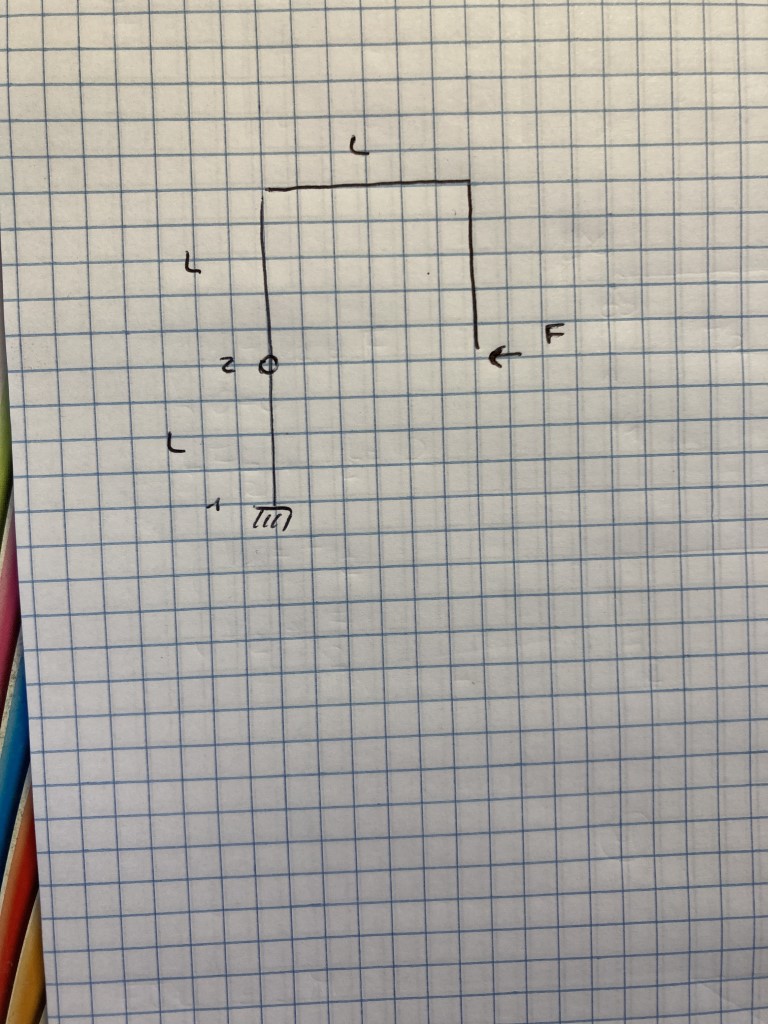 L
L
F
2
L
1